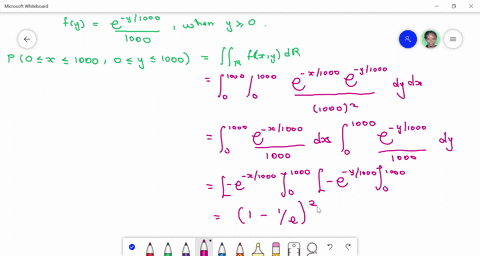 Microsoft Whiteboard
f(y) = e^{-y/1000} / 1000 , when y ≥ 0 .
P ( 0 ≤ x ≤ 1000 , 0 ≤ y ≤ 1000 ) = ∬_R f(x,y) dR
= ∫_0^{1000} ∫_0^{1000} e^{-x/1000} e^{-y/1000} / (1000)^2 dy dx
= ∫_0^{1000} e^{-x/1000} / 1000 dx ∫_0^{1000} e^{-y/1000} / 1000 dy
= [-e^{-x/1000}]_0^{1000} [-e^{-y/1000}]_0^{1000}
= (1 - 1/e)^2